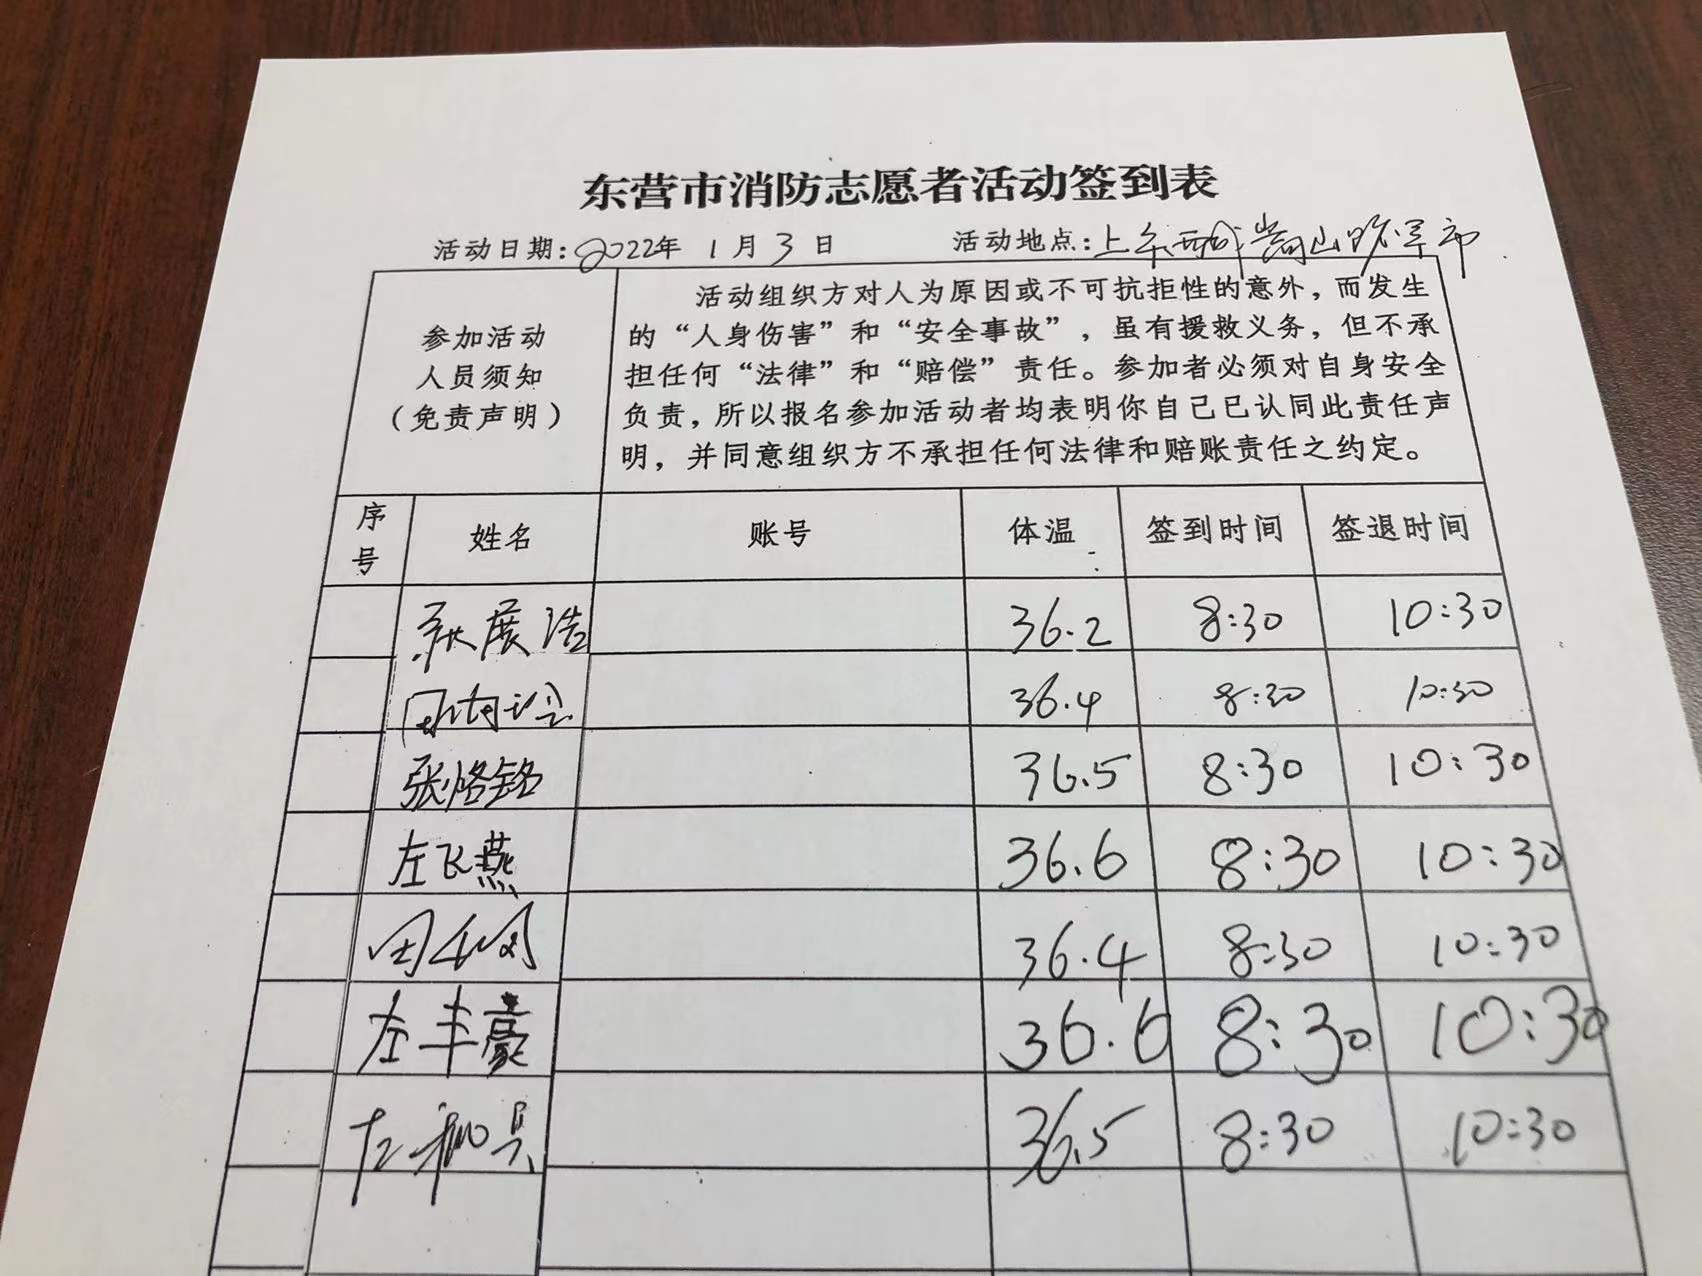 东营市消防志愿者活动签到表
活动日期:2022年 1月 3日 活动地点:
参加活动
人员须知
(免责声明)
活动组织方对人为原因或不可抗拒性的意外，而发生
的“人身伤害”和“安全事故”，虽有援救义务，但不承
担任何“法律”和“赔偿”责任。参加者必须对自身安全
负责，所以报名参加活动者均表明你自己已认同此责任声
明，并同意组织方不承担任何法律和赔账责任之约定。
序号 姓名 账号 体温 签到时间 签退时间
展浩 36.2 8:30 10:30
36.4 8:30 10:30
张烙铭 36.5 8:30 10:30
左飞燕 36.6 8:30 10:30
36.4 8:30 10:30
左丰豪 36.6 8:30 10:30
36.5 8:30 10:30